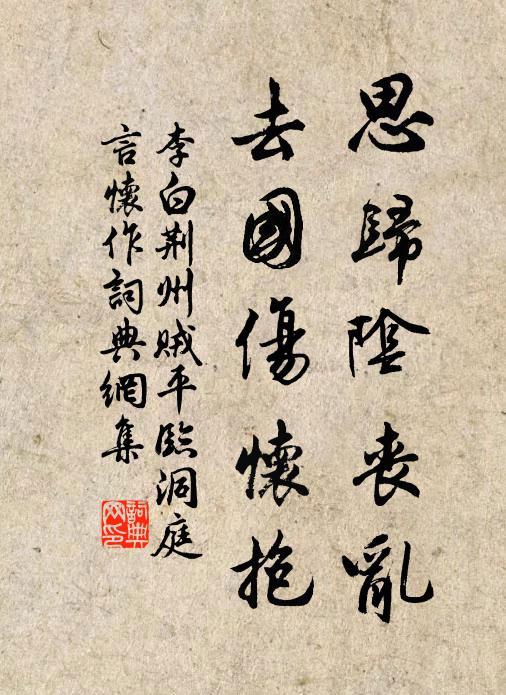 思歸陰喪亂
去國傷懷抱
李白荆州賊平臨洞庭
言懷作詞典網集
詞典網印